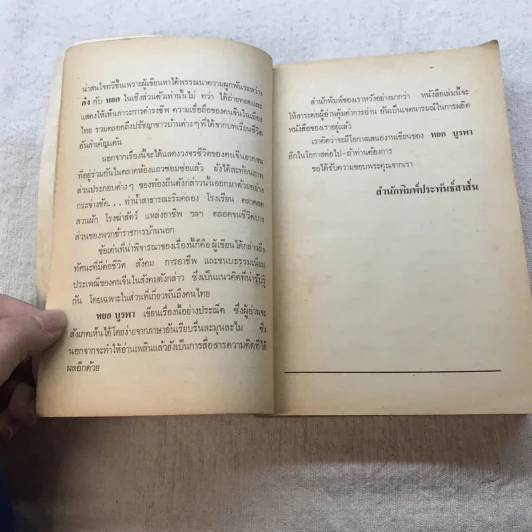 น่าสนใจทวีขึ้นเพราะผู้เขียนหาได้พรรณนาความผูกพันระหว่าง
ตง กับ หยก ในเชิงส่วนตัวเท่านั้นไม่ ทว่า ได้ถ่ายทอดและ
แสดงให้เห็นภาวะการดำรงชีพ ความเชื่อถือของคนจีนในเมือง
ไทย รวมตลอดถึงปรัชญาชาวบ้านต่างๆ ที่ได้จากบทเรียนชีวิต
อันล้ำเค็ญด้น
นอกจากเรื่องนี้จะได้แสดงวงจรชีวิตของคนจีนยากจน
ที่อยู่ร่วมกันในตลาดห้องแถวซอมซ่อแล้ว ยังได้สะท้อนภาพ
ส่วนประกอบต่างๆ ของท้องถิ่นดังกล่าวนั้นออกมาด้วยอย่าง
กระจ่างชัด... ท่าน้ำสาธารณะริมคลอง โรงเรียน ตลาดสด
สวนผัก โรงฆ่าสัตว์ แหล่งอาชีพ ฯลฯ ตลอดจนชีวิตบาง
ส่วนของพวกข้าราชการบ้านนอก
ข้อเด่นที่น่าพิจารณาของเรื่องนี้ก็คือ ผู้เขียนได้กล่าวถึง
ทัศนะที่มีต่อชีวิต สังคม การอาชีพ และขนบธรรมเนียม
ประเพณีของคนจีนในสังคมดังกล่าว ซึ่งเป็นแนวคิดที่น่ารับรู้
กัน โดยเฉพาะในส่วนที่เกี่ยวพันถึงคนไทย
หยก บูรพา เขียนเรื่องนี้อย่างประณีต ซึ่งผู้อ่านจะ
สังเกตเห็นได้โดยง่ายจากภาษาอันเรียบรื่นละมุนละไม ซึ่ง
นอกจากจะทำให้อ่านเพลินแล้วยังเป็นการสื่อสารความคิดที่ได้
ผลอีกด้วย
สำนักพิมพ์ของเราหวังอย่างมากว่า หนังสือเล่มนี้จะ
ให้สาระต่อผู้อ่านคุ้มค่าการอ่าน อันเป็นเจตนารมณ์ในการผลิต
หนังสือของเราอยู่แล้ว
เราคิดว่าจะมีโอกาสเสนองานเขียนของ หยก บูรพา
อีกในโอกาสต่อไป—ถ้าท่านต้องการ
ขอได้รับความขอบพระคุณจากเรา
สำนักพิมพ์ประพันธ์สาส์น